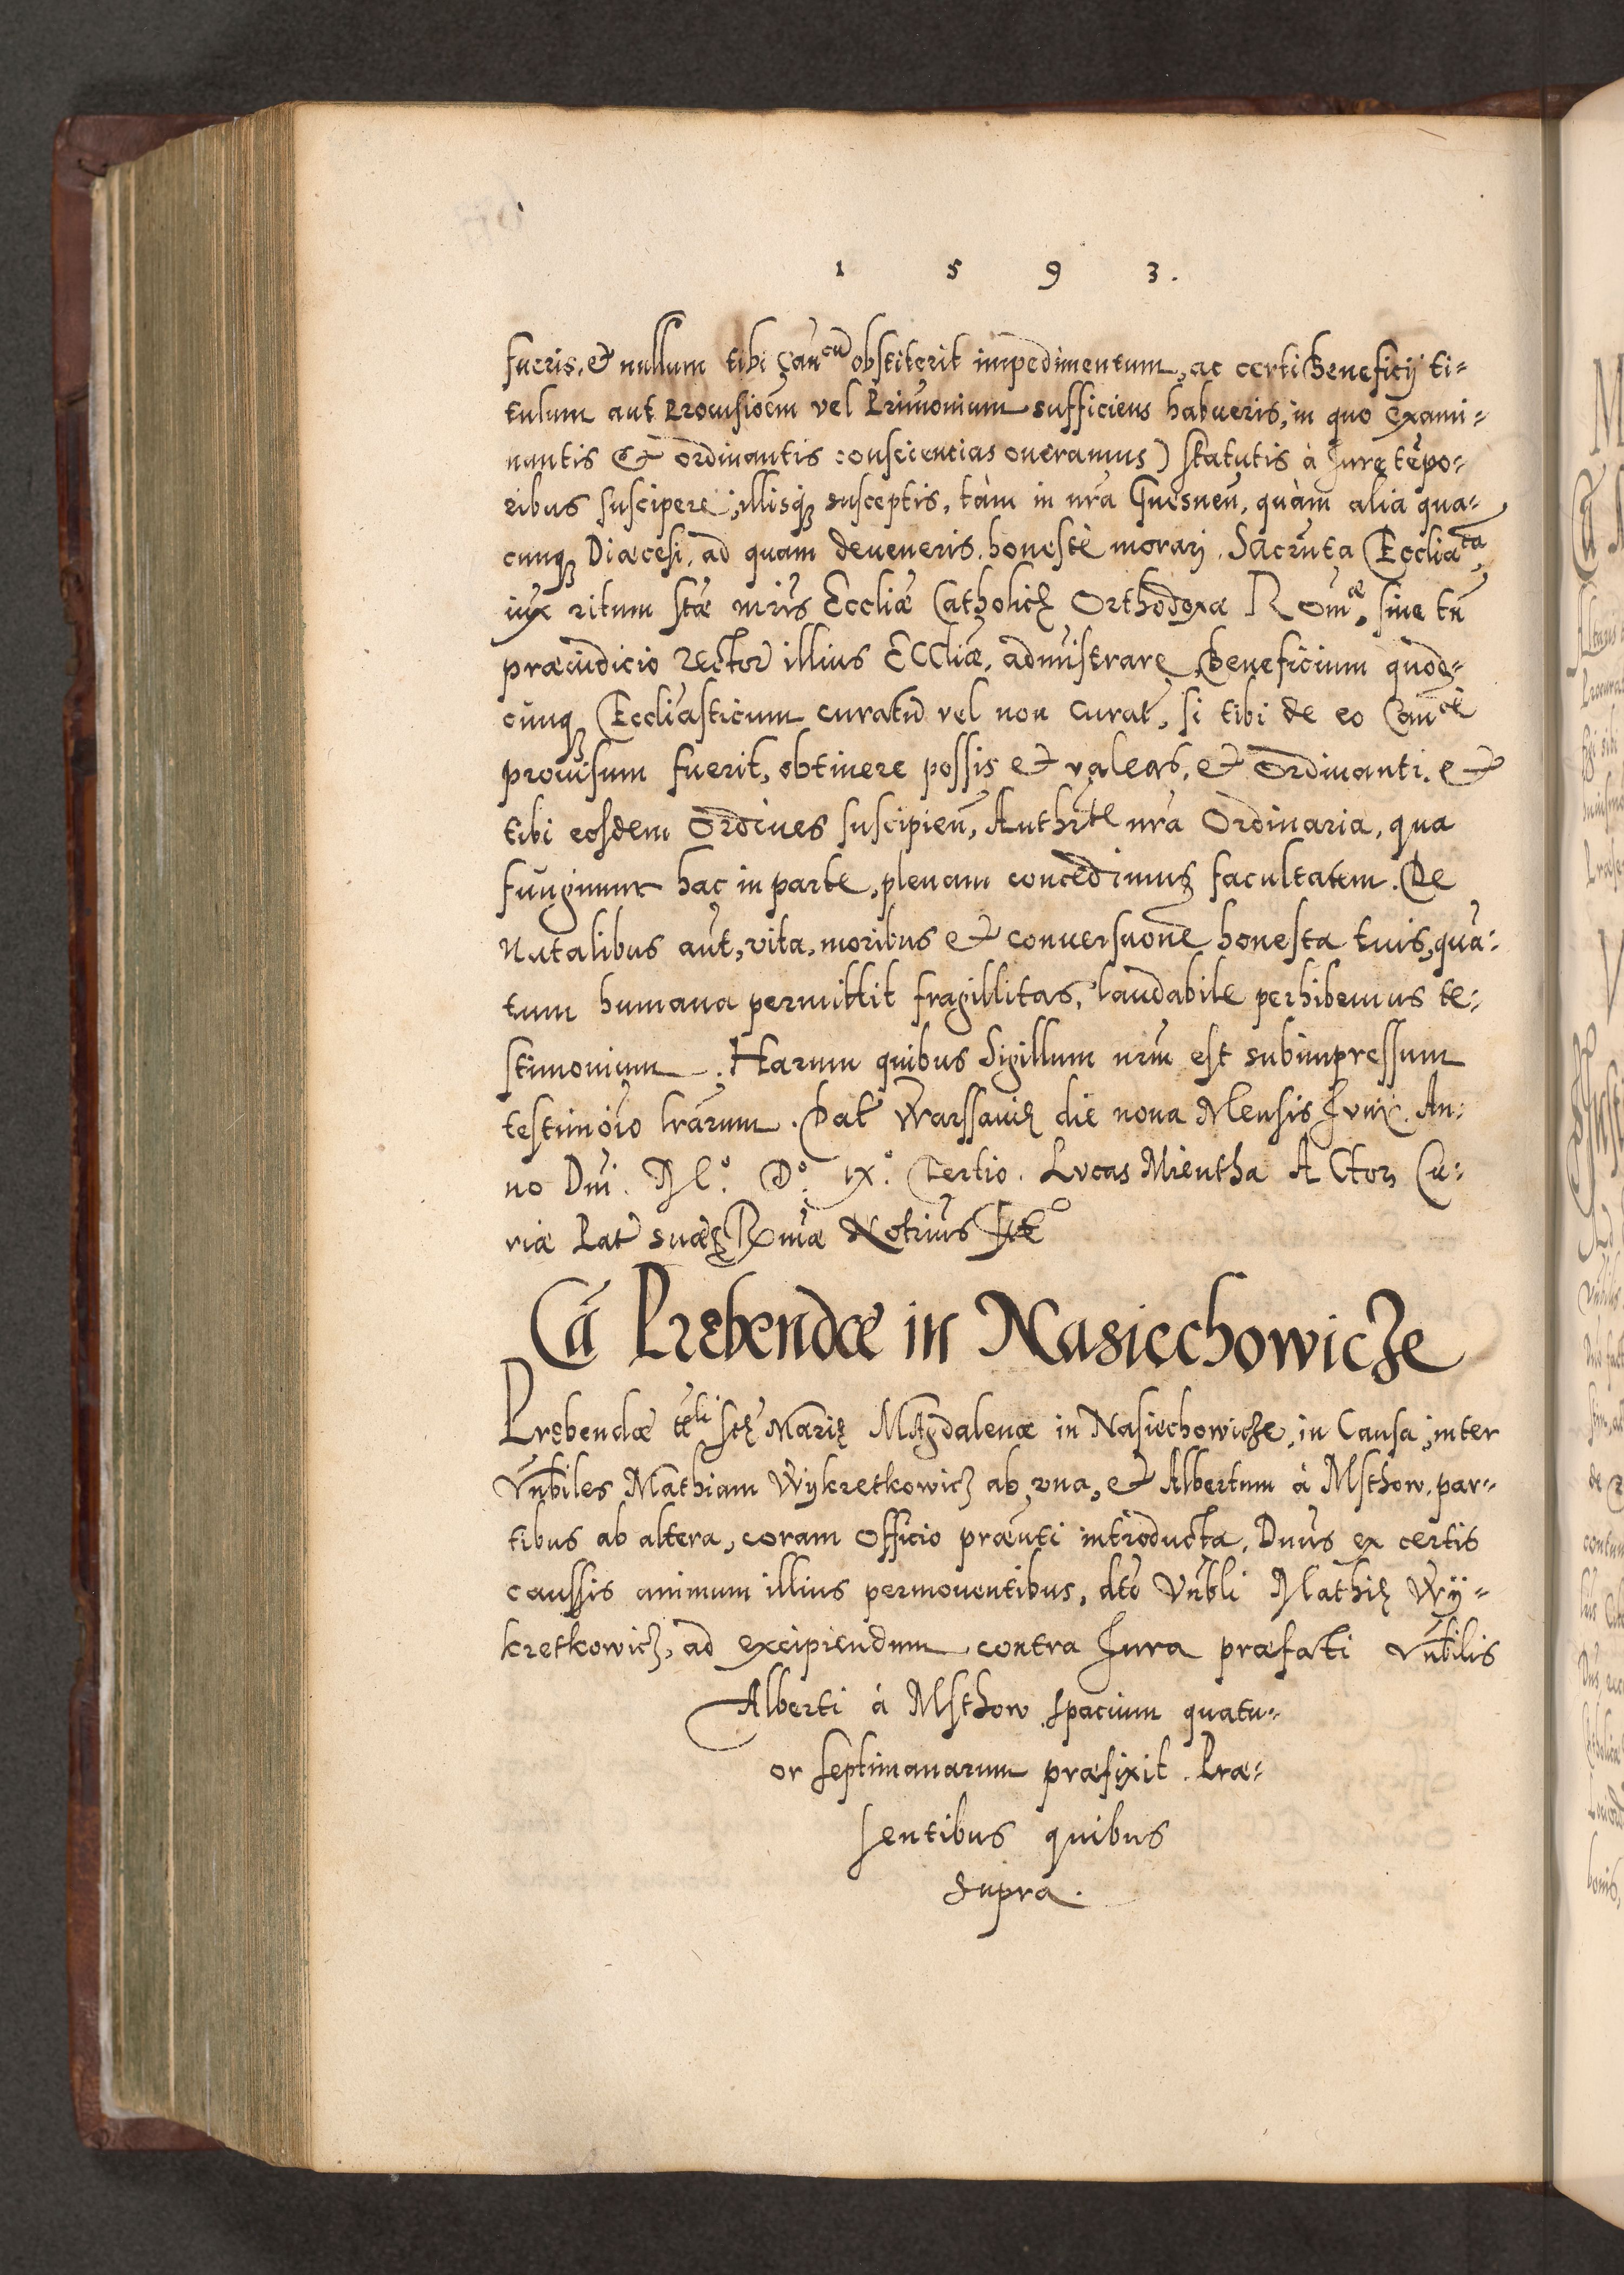 1 5 9 3.
fueris, et nullum tibi Can̄cū obstiterit impedimentum, ac certi Beneficij ti-
tulum aut Prouisioēm vel Pr̄imonium sufficiens habueris, in quo exami-
nantis et ordinantis consciencias oneramus) statutis à Jure tēpo-
ribus suscipere, illisq₃ susceptis, tàm in nr̄a Gnesneñ, quàm alia qua-
cunq₃ Diæcesi, ad quam deueneris honestè morari, Sacrn̄ta Eccliāca,
iux ritum stæ mr̄is Eccliæ Catholicę Orthodoxæ Romæ, sine tn̄
præiudicio rector illius Eccliæ, admīstrare, Beneficium quod-
cunq₃ Eccliāsticum curatū vel non curat, si tibi de eo Can̄cè
prouisum fuerit, obtinere possis et valeas, et Ordinanti, et
tibi eosdem Ordines suscipieñ, Authr̄te nr̄a Ordinaria, qua
fungimur hac in parte, plenam concedimus facultatem. De
Natalibus aut̄, vita, moribus et conuersāone honesta tuis, quā-
tum humana permittit fragillitas, laudabile perhibemus te-
stimonium. Harum quibus Sigillum nrm̄ est subimpressum
testimoīo lrārum. Dat Warssauię die nona Mensis Junij. An-
no Dnī. Mº. Dº. IXº. Tertio. Lucas Mientha Actor, Cu-
riæ Pat suæ Rmæ Notrius
Cā Prebendæ in Nasiechowicze
Prebendæ ttli Stę Marię Magdalenæ in Nasiechowicze, in Causa, inter
Vn̄biles Mathiam Wykretkowicz ab vna, et Albertum à Msthow, par-
tibus ab altera, coram Officio præn̄ti introducta, Dnūs ex certis
caussis animum illius permouentibus, dto Vn̄bli Mathię Wÿ-
kretkowicz, ad excipiendum contra Jura præfati Vn̄bilis
Alberti à Msthow spacium quatu-
or septimanarum præfixit. Præ-
sentibus quibus
supra.